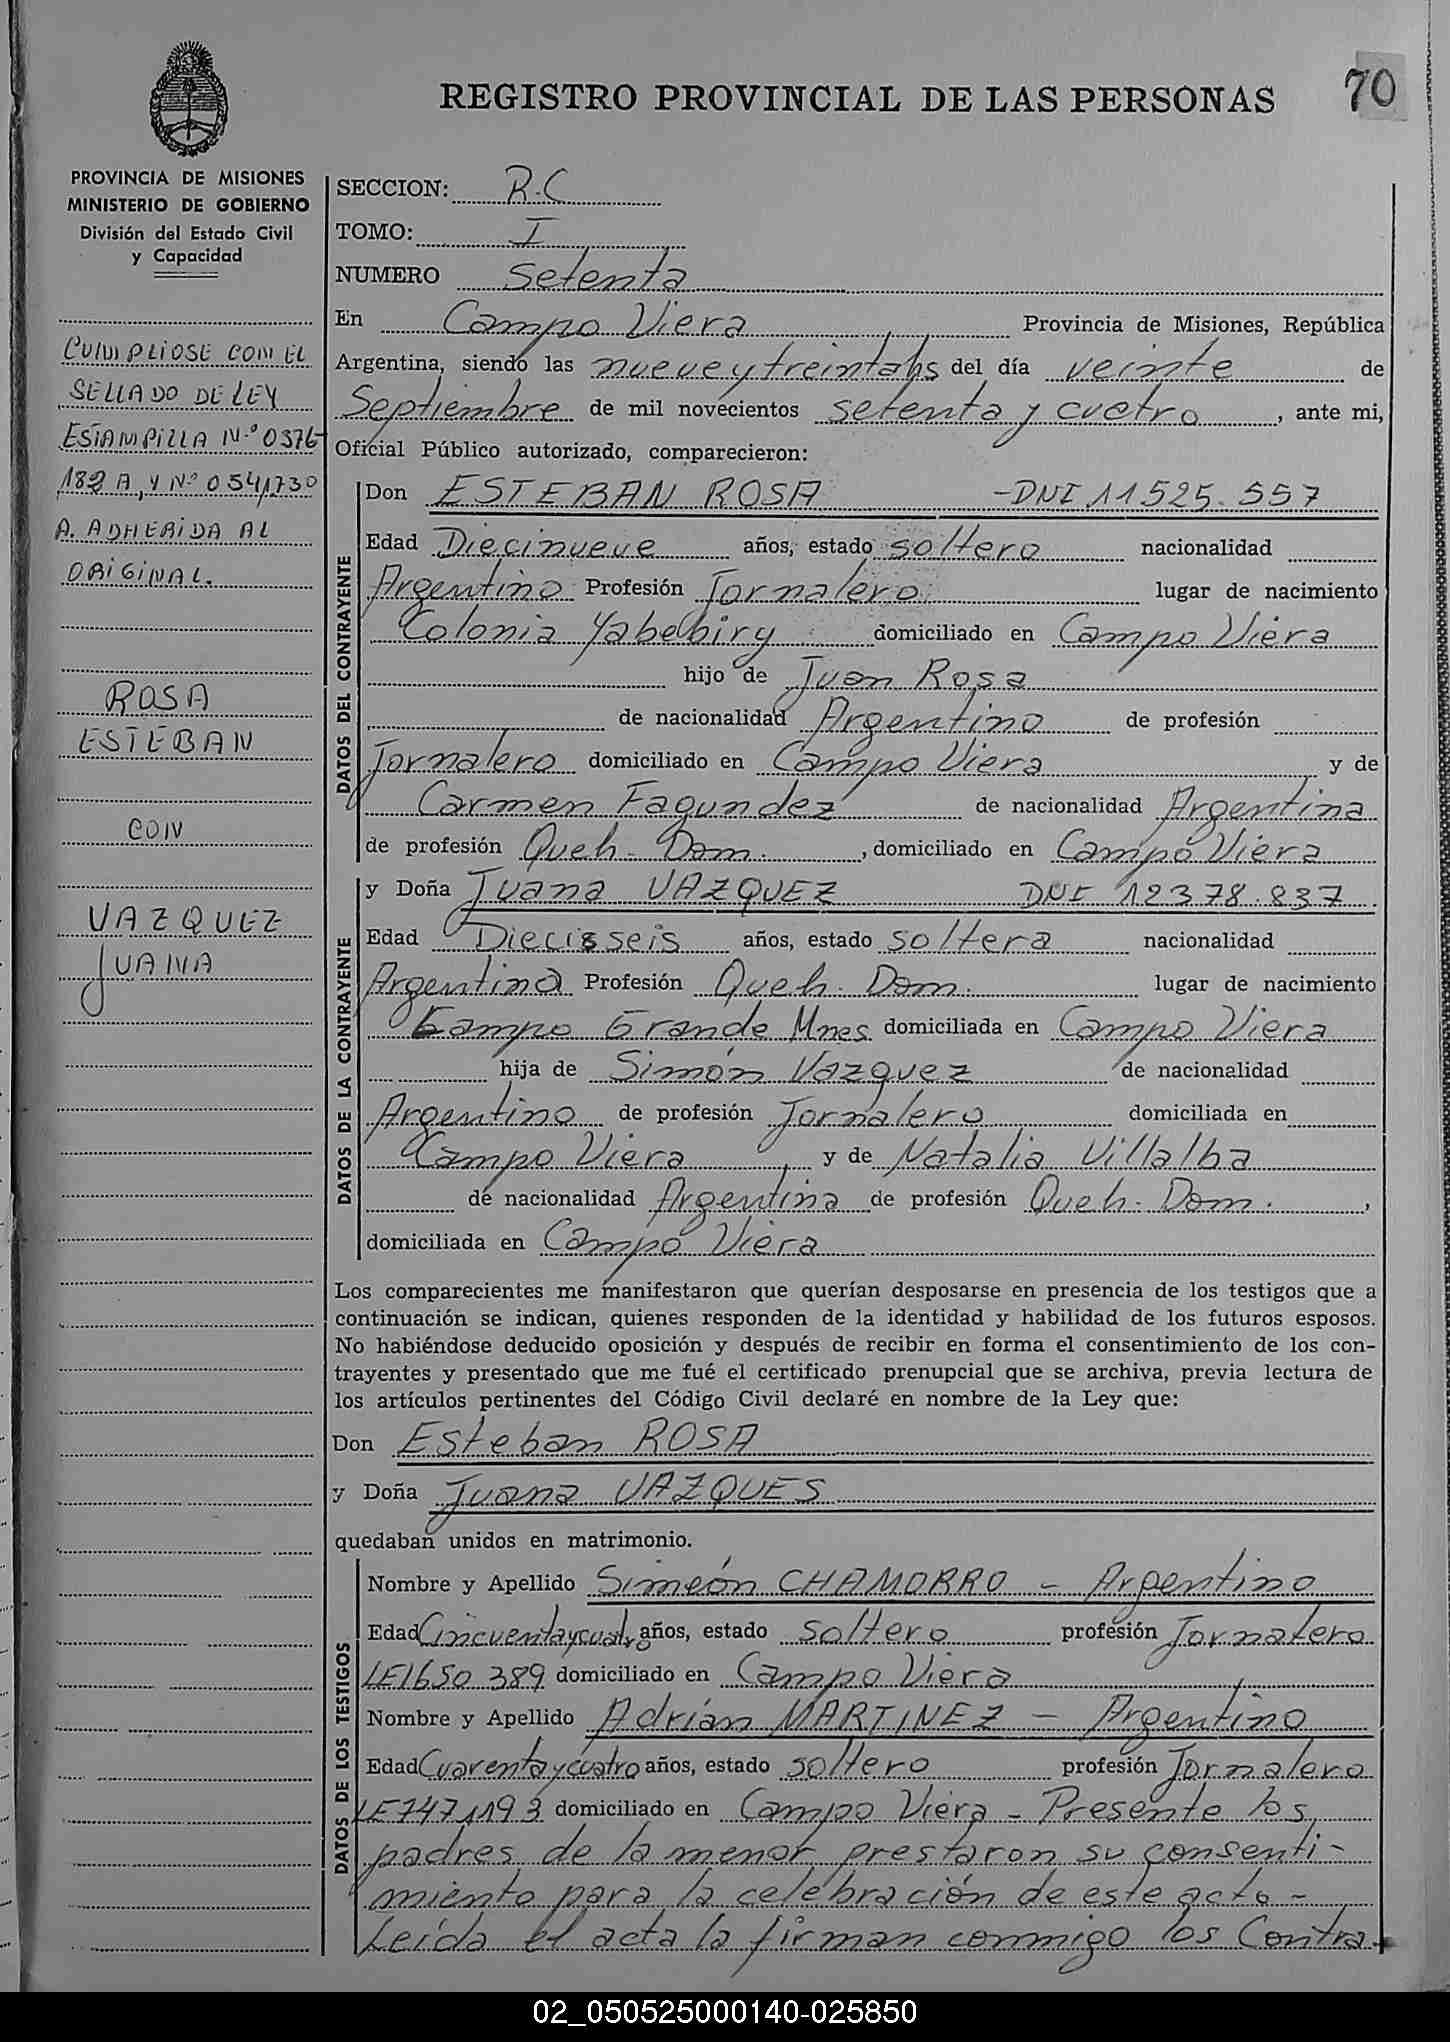 REGISTRO PROVINCIAL DE LAS PERSONAS
70
PROVINCIA DE MISIONES
MINISTERIO DE GOBIERNO
División del Estado Civil
y Capacidad
CUMPLIOSE CON EL
SELLADO DE LEY
ESTAMPILLA Nº 0376
182 A, Y Nº 0541730
A. ADHERIDA AL
ORIGINAL.
ROSA
ESTEBAN
CON
VAZQUEZ
JUANA
SECCION: R.C
TOMO: I
NUMERO Setenta
En Campo Viera Provincia de Misiones, República
Argentina, siendo las nueve y treinta hs del día veinte de
Septiembre de mil novecientos setenta y cuatro, ante mi,
Oficial Público autorizado, comparecieron:
DATOS DEL CONTRAYENTE
Don ESTEBAN ROSA -DNI 11525.557
Edad Diecinueve años, estado soltero nacionalidad
Argentino Profesión Jornalero lugar de nacimiento
Colonia Yabebiry domiciliado en Campo Viera
hijo de Juan Rosa
de nacionalidad Argentino de profesión
Jornalero domiciliado en Campo Viera y de
Carmen Fagundez de nacionalidad Argentina
de profesión Queh. Dom. , domiciliado en Campo Viera
DATOS DE LA CONTRAYENTE
y Doña Juana VAZQUEZ DNI 12378.837
Edad Dieciseis años, estado soltera nacionalidad
Argentina Profesión Queh. Dom. lugar de nacimiento
Campo Grande Mnes domiciliada en Campo Viera
hija de Simón Vazquez de nacionalidad
Argentino de profesión Jornalero domiciliada en
Campo Viera y de Natalia Villalba
de nacionalidad Argentina de profesión Queh. Dom. ,
domiciliada en Campo Viera
Los comparecientes me manifestaron que querían desposarse en presencia de los testigos que a
continuación se indican, quienes responden de la identidad y habilidad de los futuros esposos.
No habiéndose deducido oposición y después de recibir en forma el consentimiento de los con-
trayentes y presentado que me fué el certificado prenupcial que se archiva, previa lectura de
los artículos pertinentes del Código Civil declaré en nombre de la Ley que:
Don Esteban ROSA
y Doña Juana VAZQUES
quedaban unidos en matrimonio.
DATOS DE LOS TESTIGOS
Nombre y Apellido Simeón CHAMORRO - Argentino
Edad Cincuenta y cuatro años, estado soltero profesión Jornalero
LE 1650 389 domiciliado en Campo Viera
Nombre y Apellido Adrián MARTINEZ - Argentino
Edad Cuarenta y cuatro años, estado soltero profesión Jornalero
LE 7471193 domiciliado en Campo Viera - Presente los
padres de la menor prestaron su consenti-
miento para la celebración de este acto -
Leída el acta la firman conmigo los Contra-
02_050525000140-025850